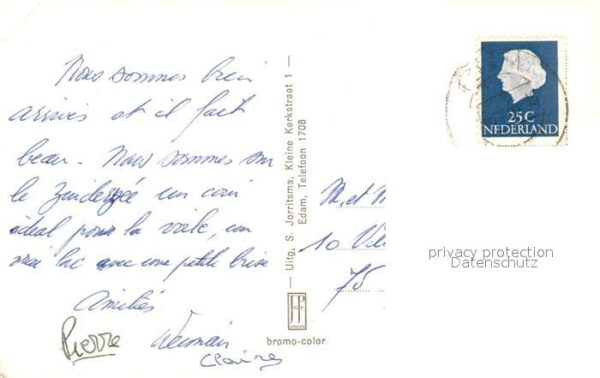 Nous sommes bien
arrivés et il fait
beau. Nous sommes sur
le Zuiderzée un coin
idéal pour la voile, un
vrai lac avec une petite brise
Amitiés
Pierre
Germain
Claire
Uitg. S. Jorritsma, Kleine Kerkstraat 1 —
Edam, Telefoon 1708
bromo-color
25C
NEDERLAND
M. et M
10
75
privacy protection
Datenschutz